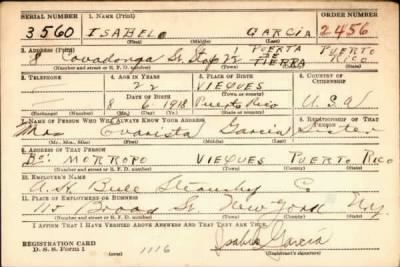 SERIAL NUMBER 1. NAME (Print) ORDER NUMBER
3560 ISABELO GARCIA 2456
(First) (Middle) (Last)
2. ADDRESS (Print)
8 Covadonga St. Stop 2½ PUERTA DE TIERRA PUERTO RICO
(Number and street or R. F. D. number) (Town) (County) (State)
3. TELEPHONE 4. AGE IN YEARS 5. PLACE OF BIRTH 6. COUNTRY OF CITIZENSHIP
22 VIEQUES
DATE OF BIRTH (Town or county)
8 6 1918 Puerto Rico U.S.A.
(Exchange) (Number) (Mo.) (Day) (Yr.) (State or country)
7. NAME OF PERSON WHO WILL ALWAYS KNOW YOUR ADDRESS 8. RELATIONSHIP OF THAT PERSON
Mrs Evarista Garcia Sister
(Mr., Mrs., Miss) (First) (Middle) (Last)
9. ADDRESS OF THAT PERSON
Bo. MORROPO VIEQUES PUERTO RICO
(Number and street or R. F. D. number) (Town) (County) (State)
10. EMPLOYER'S NAME
A. H. Bull Steamship Co
11. PLACE OF EMPLOYMENT OR BUSINESS
115 Broad St. New York N.Y.
(Number and street or R. F. D. number) (Town) (County) (State)
I AFFIRM THAT I HAVE VERIFIED ABOVE ANSWERS AND THAT THEY ARE TRUE.
REGISTRATION CARD
D. S. S. Form 1 1116 Isabelo Garcia
(Registrant's signature)